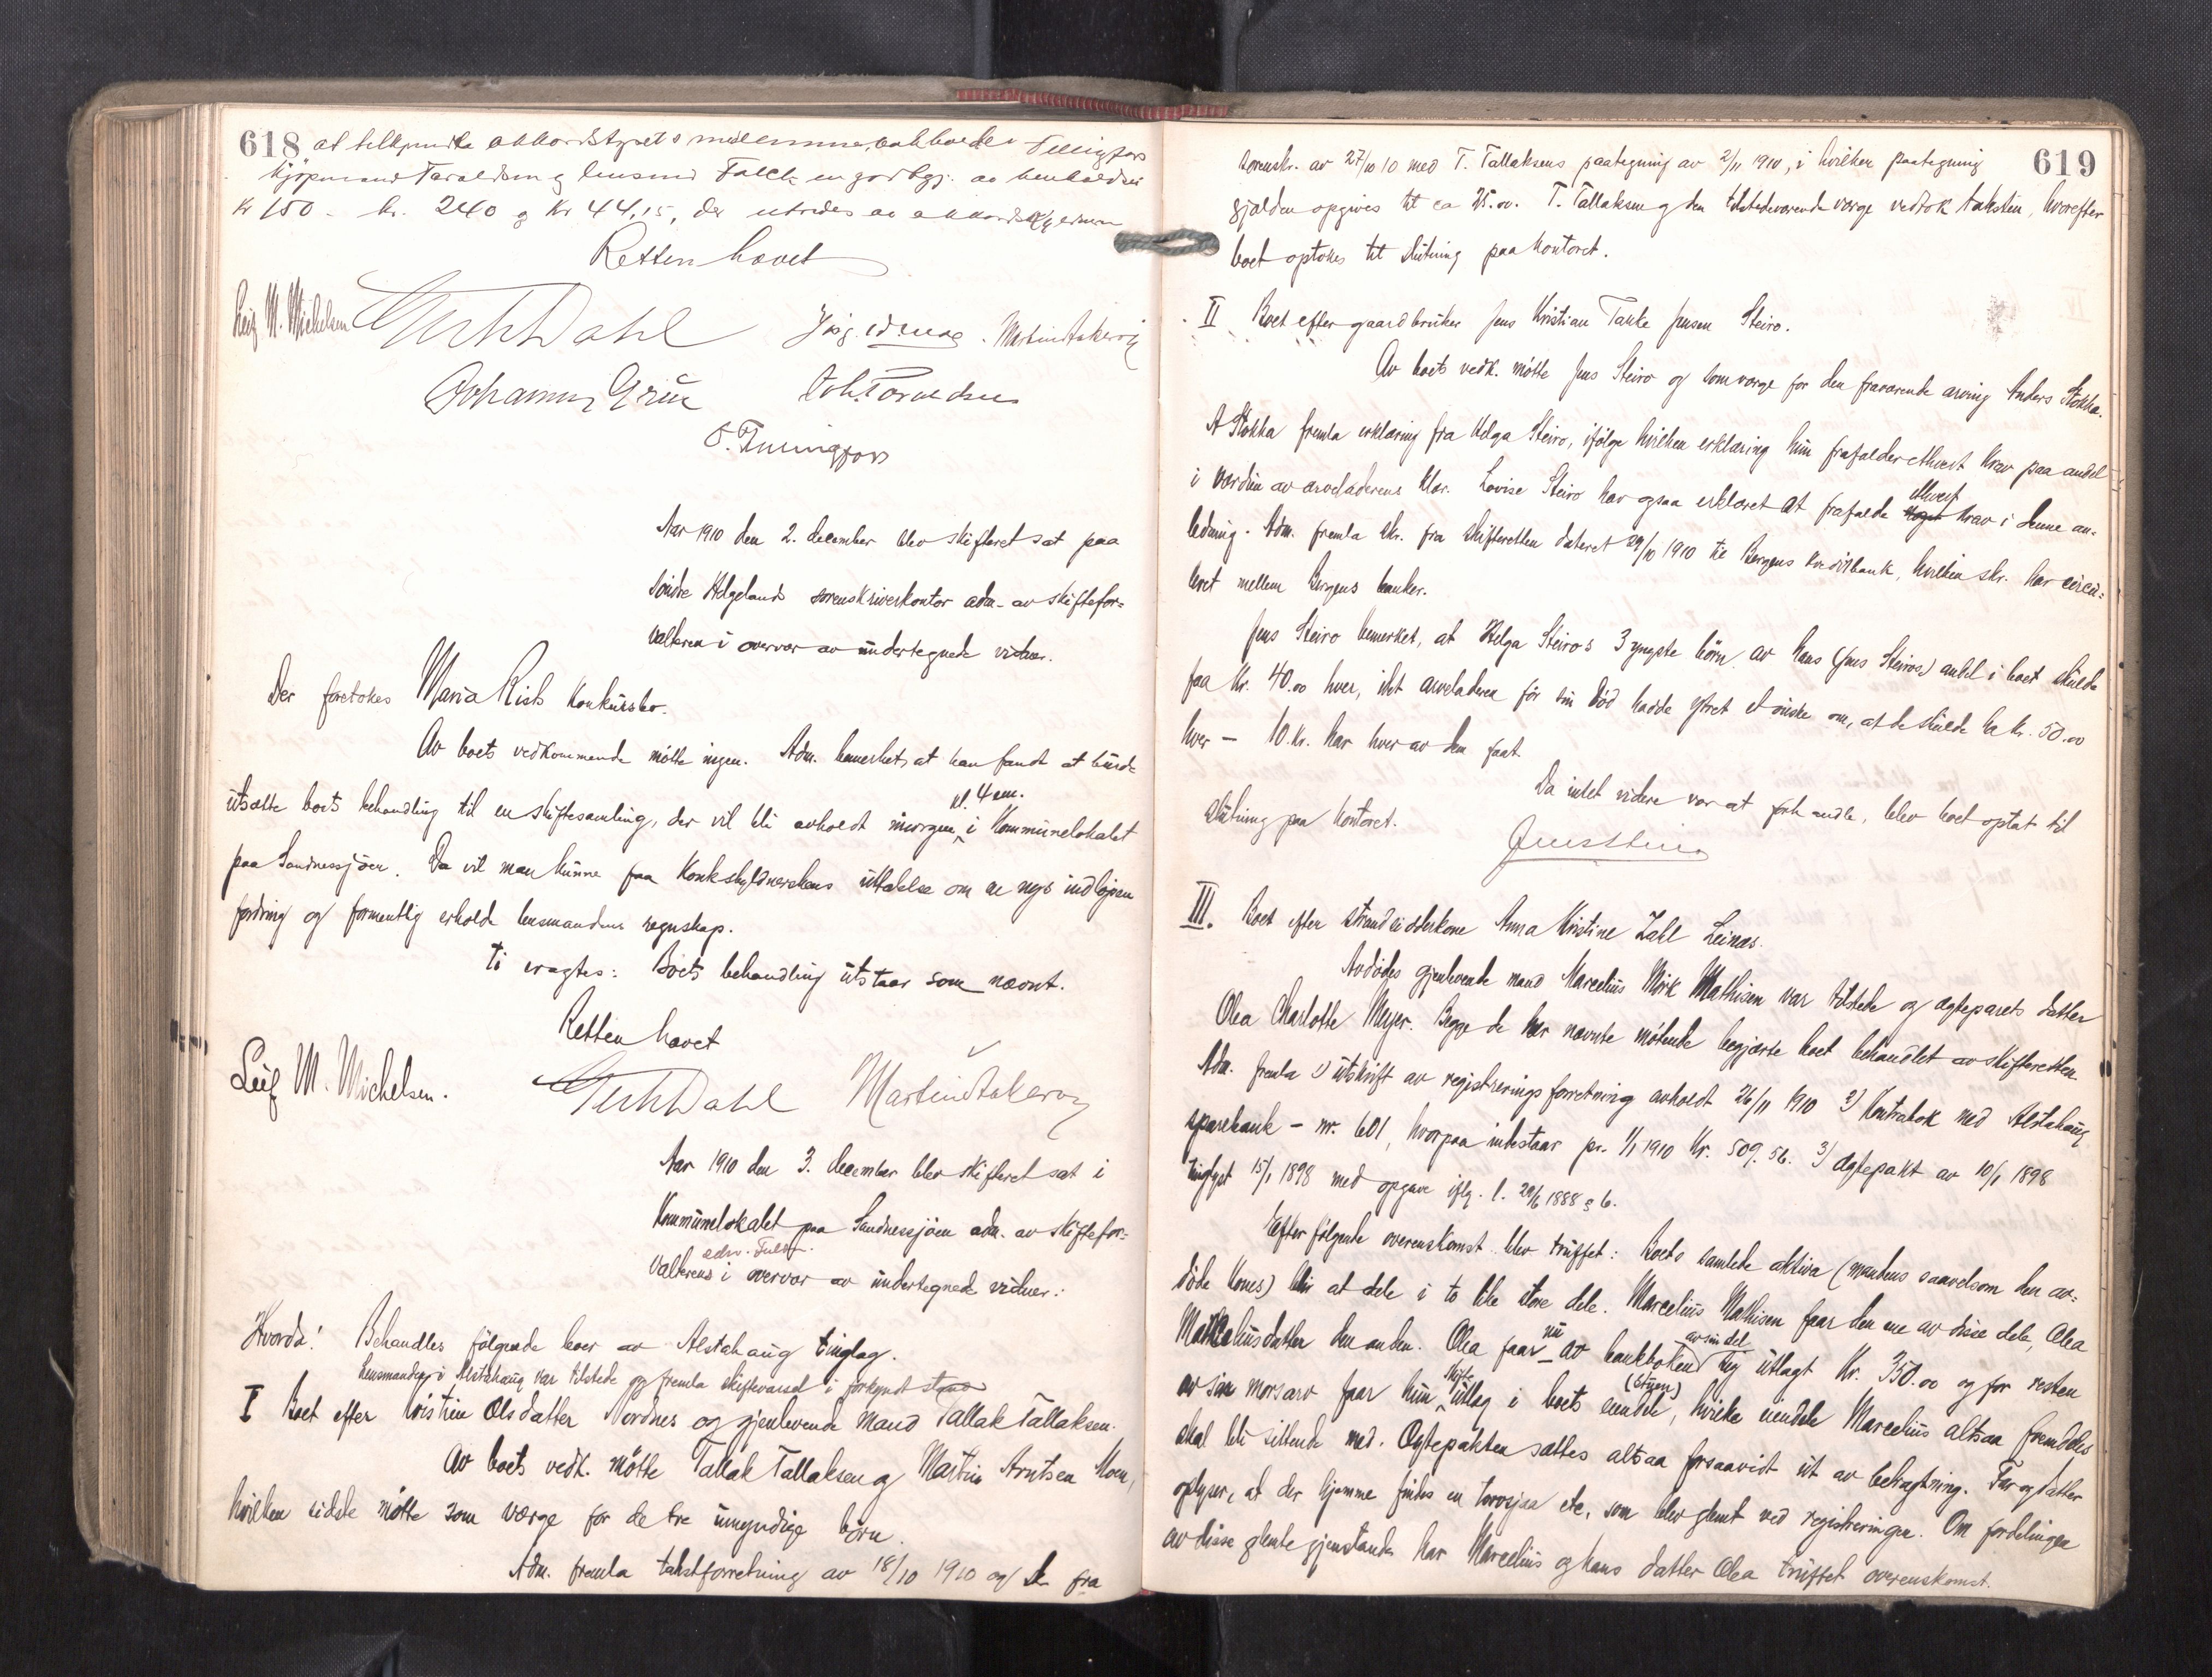 618
at tilkjende akkordstyrets medlemmer, bokholder
Kjøpmand Taraldsen og lensmd Falch en godtgj. av henholdsvis
kr 150 - kr. 240 og kr 44,15, der utredes av
Retten hævet
Leif M. Michelsen
Dahl
Martin Aakerøy
Johannes Grün
Aar 1910 den 2. december blev skifteret sat paa
Söndre Helgelands sorenskriverkontor adm. av skiftefor-
valteren i overvær av undertegnede vidner.
Der foretokes Maria Rish konkursbo.
Av boets vedkommende møtte ingen. Adm. bemerket, at han fandt at burde
utsætte boets behandling til en skiftesamling, der vil bli avholdt imorgen kl. 4 em. i Kommunelokalet
paa Sandnessjøen. Da vil man kunne faa konkskyldnerskens uttalelse om en nys indløpen
fordring og formentlig erholde lensmandens regnskap.
Ti eragtes: Boets behandling utstaar som nævnt.
Retten hævet
Leif M. Michelsen.
Dahl
Martin Aakerøy
Aar 1910 den 3. december blev skifteret sat i
Kommunelokalet paa Sandnessjøen adm. av skiftefor-
valterens edsv. Fuldm. i overvær av undertegnede vidner:
Hvorda! Behandles følgende boer av Alstahaug tinglag.
Lensmanden i Alstahaug var tilstede og fremla skiftevarsel i forkyndt stand
I Boet efter Kristine Olsdatter Nordnes og gjenlevende mand Tallak Tallaksen.
Av boets vedk. møtte Tallak Tallaksen og Martin Arntsen Moen,
hvilken sidste møtte som verge for de tre umyndige børn.
Adm. fremla takstforretning av 18/10 1910 og skr fra
619
sorenskr. av 27/10 10 med T. Tallaksens paategning av 2/11 1910, i hvilken paategning
gjælden opgives til ca 25.00. T. Tallaksen og den tilstedeværende verge vedtok taksten, hvorefter
boet optokes til slutning paa kontoret.
II Boet efter gaardbruker Jens Kristian Tanke Jensen Steiro.
Av boets vedk. møtte Jens Steiro og som verge for den fraværende arving Anders Stokka.
A Stokka fremla erklæring fra Helga Steiro, ifølge hvilken erklæring hun frafalder ethvert krav paa andel
i værdien av arveladerens klær. Lovise Steiro har ogsaa erklæret at frafalde ethvert krav i denne an-
ledning. Adm. fremla skr. fra skifteretten dateret 29/10 1910 til Bergens Kreditbank, hvilken skr. har circu-
leret mellem Bergens banker.
Jens Steiro bemerket, at Helga Steiro's 3 yngste börn av hans (Jens Steiros) andel i boet skulde
faa kr. 40.00 hver, idet arveladeren för sin död hadde ytret et önske om, at de skulde ha kr. 50.00
hver - 10 kr. har hver av dem faat.
Da intet videre var at forhandle, blev boet optat til
slutning paa kontoret.
Jens Steiro
III. Boet efter strandsidderkone Anna Kristine Zahl Leines.
Avdødes gjenlevende mand Marcelius Mörk Mathisen var tilstede og egteparets datter
Olea Charlotte Meyer. Begge de her nævnte møtende begjærte boet behandlet av skifteretten.
Adm. fremla 1) utskrift av registreringsforretning avholdt 26/11 1910 2) Kontrabok med Alstahaug
sparebank - nr. 601, hvorpaa indestaar pr. 1/1 1910 Kr. 509.56. 3) Ægtepakt av 10/1 1898
tinglyst 15/1 1898 med opgave iflg. l. 29/6 1888 § 6.
Efter følgende overenskomst blev truffet: Boets samlede aktiva (mandens saavelsom den av-
døde kones) blir at dele i to like store dele. Marcelius Mathisen faar den ene av disse dele, Olea
Marceliusdatter den anden. Olea faar nu av bankboken av sin del sig utlagt Kr. 350.00 og for resten
av sin morsarv faar hun utlæg i boets eiendele (Stuen), hvilke eiendele Marcelius altsaa fremdeles
skal bli sittende med. Ægtepakten sættes altsaa forsaavidt ut av betragtning. Far og datter
oplyser, at der hjemme findes en torvsjaa etc, som blev glemt ved registreringen. Om fordelingen
av disse glemte gjenstande har Marcelius og hans datter Olea truffet overenskomst.